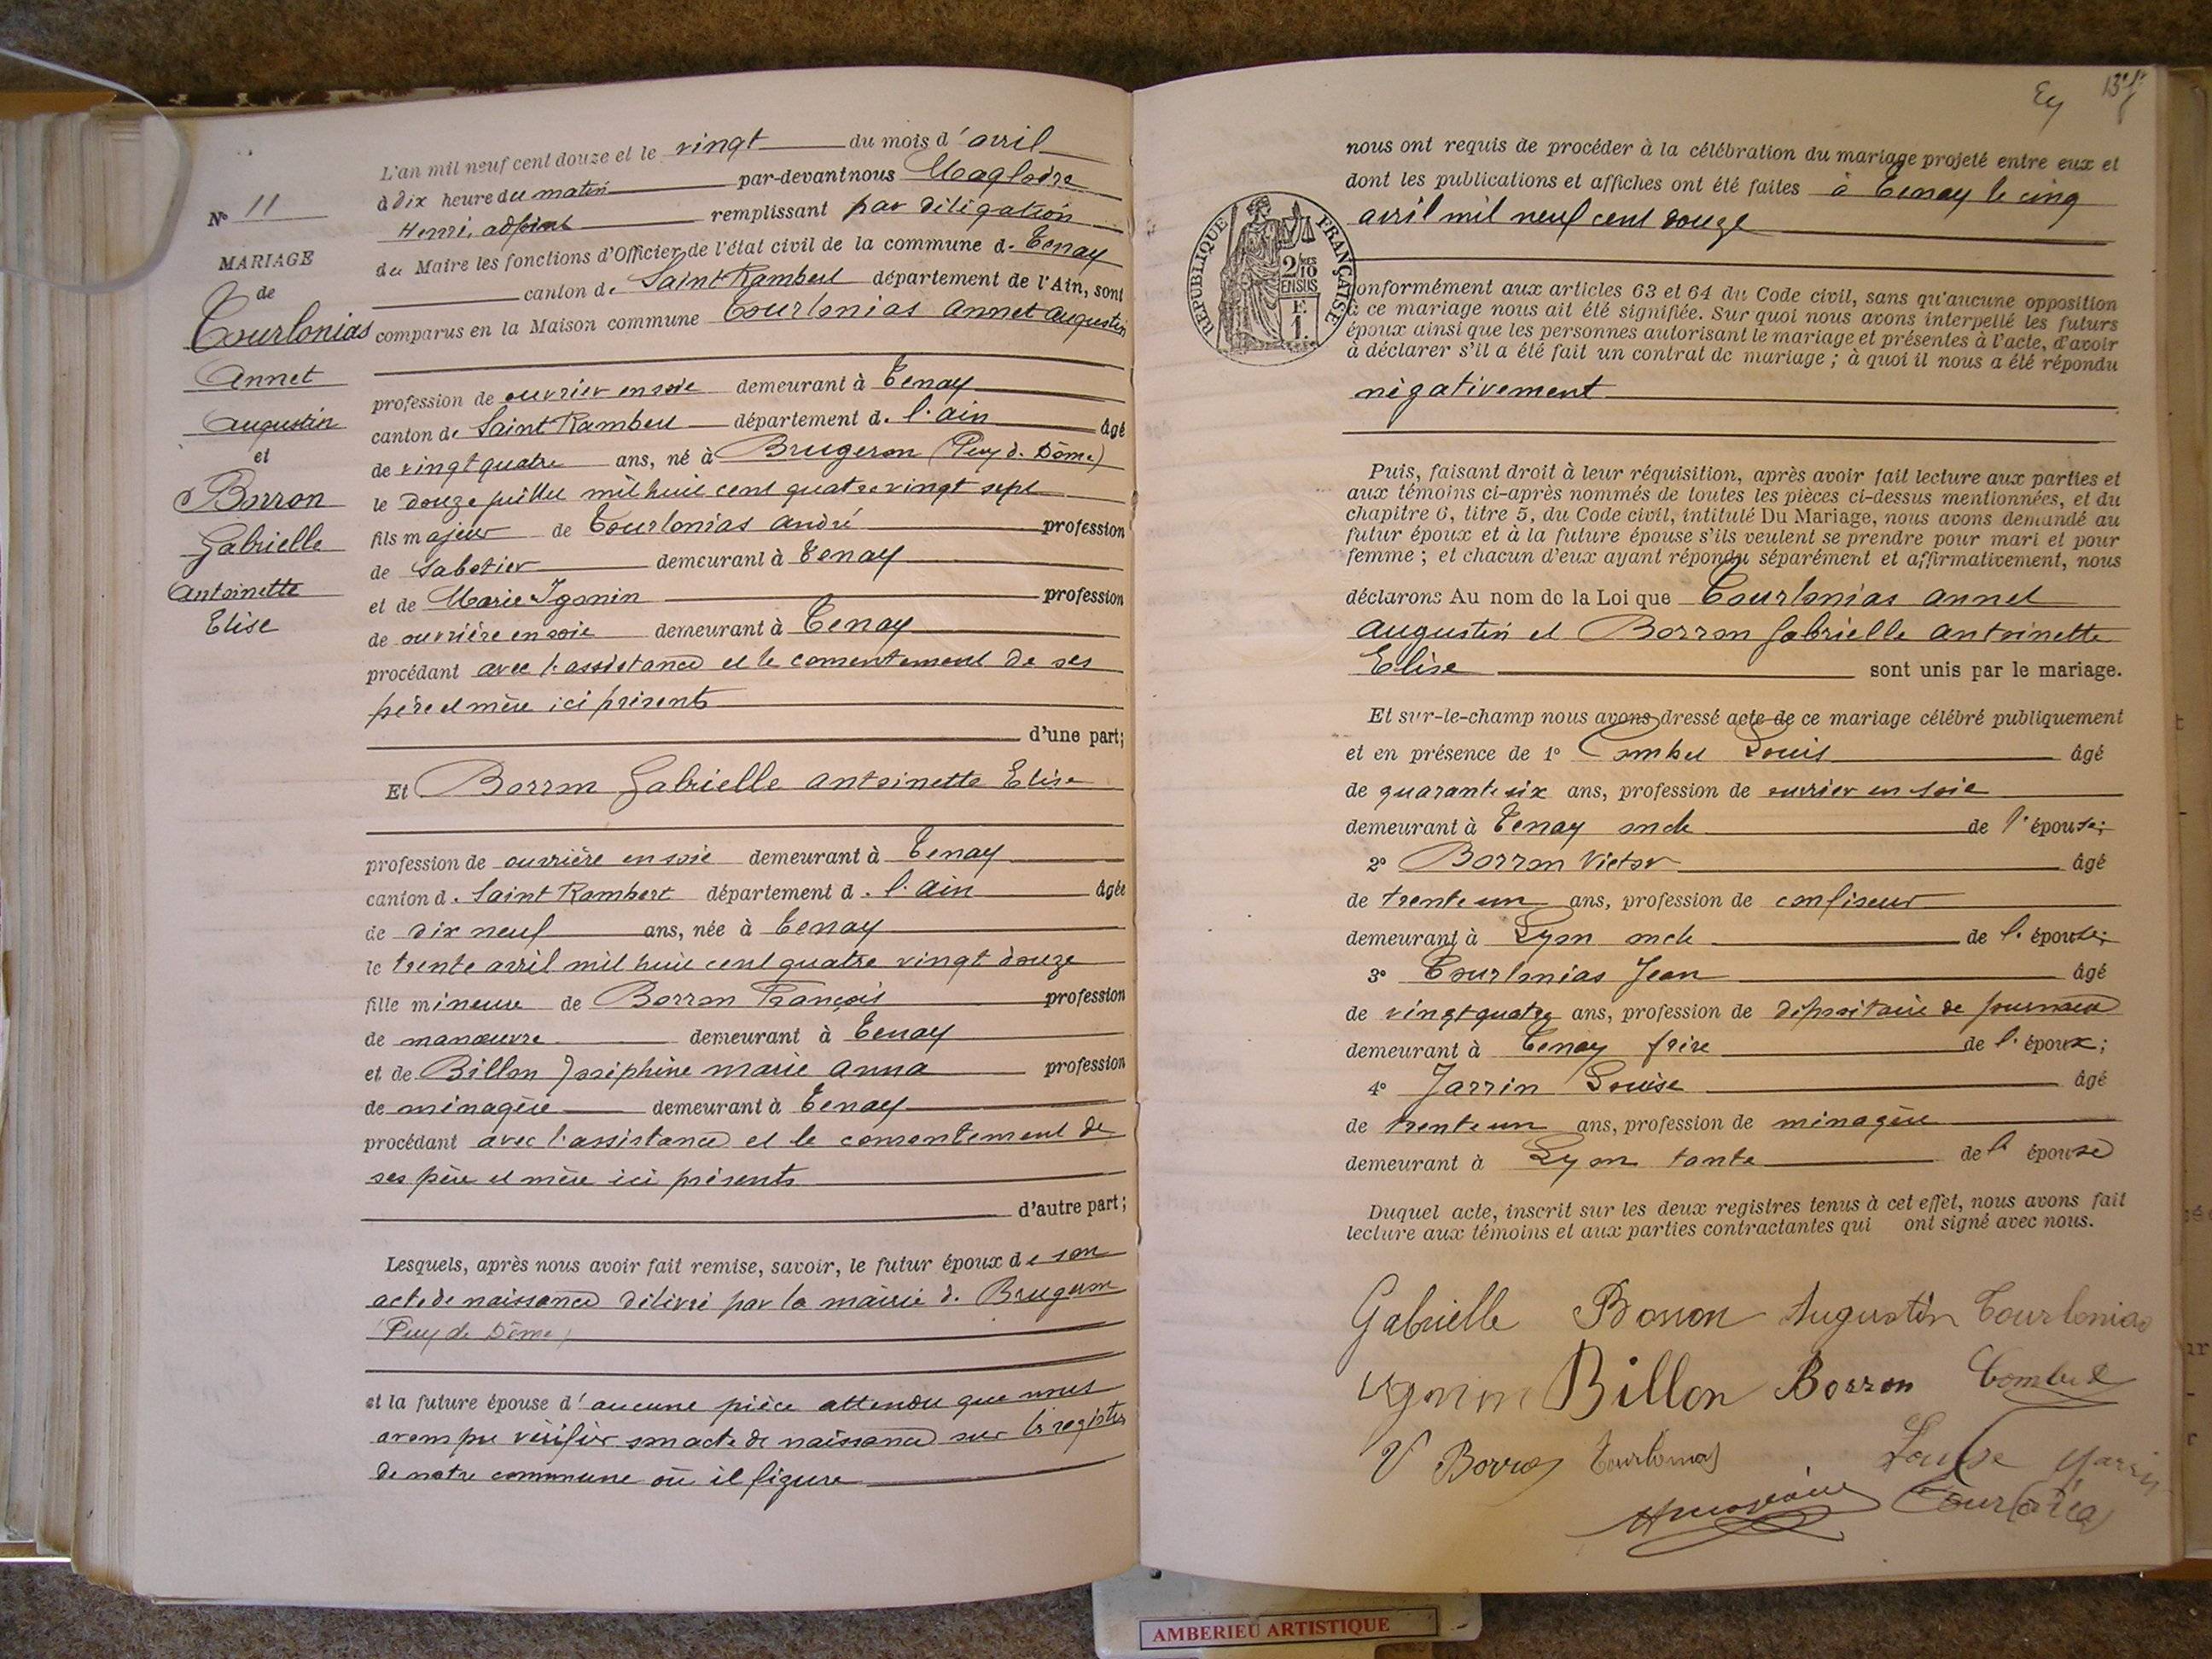 L'an mil neuf cent douze et le vingt du mois d'avril
à dix heure du matin par-devant nous Magloire
Henri, adjoint remplissant par délégation
du Maire les fonctions d'Officier de l'état civil de la commune de Tenay
canton de Saint Rambert département de l'Ain, sont
comparus en la Maison commune Tourlonias Annet Augustin
N° 11
MARIAGE
de
Tourlonias
Annet
Augustin
et
Borron
Gabrielle
Antoinette
Elise
profession de ouvrier en soie demeurant à Tenay
canton de Saint Rambert département de l'ain âgé
de vingt quatre ans, né à Brugeron (Puy de Dôme)
le douze juillet mil huit cent quatre vingt sept
fils majeur de Tourlonias André profession
de Sabotier demeurant à Tenay
et de Marie Igonin profession
de ouvrière en soie demeurant à Tenay
procédant avec l'assistance et le consentement de ses
père et mère ici présents
d'une part;
Et Borron Gabrielle Antoinette Elise
profession de ouvrière en soie demeurant à Tenay
canton de Saint Rambert département de l'ain âgée
de dix neuf ans, née à Tenay
le trente avril mil huit cent quatre vingt douze
fille mineure de Borron François profession
de manœuvre demeurant à Tenay
et de Billon Joséphine Marie Anna profession
de ménagère demeurant à Tenay
procédant avec l'assistance et le consentement de
ses père et mère ici présents
d'autre part;
Lesquels, après nous avoir fait remise, savoir, le futur époux de son
acte de naissance délivré par la mairie de Brugeron
(Puy de Dôme)
et la future épouse d'aucune pièce attendu que nous
avons pu vérifier son acte de naissance sur les registres
de notre commune où il figure
nous ont requis de procéder à la célébration du mariage projeté entre eux et
dont les publications et affiches ont été faites à Tenay le cinq
avril mil neuf cent douze
RÉPUBLIQUE FRANÇAISE
2/10
EN SUS
F.
1.
conformément aux articles 63 et 64 du Code civil, sans qu'aucune opposition
à ce mariage nous ait été signifiée. Sur quoi nous avons interpellé les futurs
époux ainsi que les personnes autorisant le mariage et présentes à l'acte, d'avoir
à déclarer s'il a été fait un contrat de mariage ; à quoi il nous a été répondu
négativement
Puis, faisant droit à leur réquisition, après avoir fait lecture aux parties et
aux témoins ci-après nommés de toutes les pièces ci-dessus mentionnées, et du
chapitre 6, titre 5, du Code civil, intitulé Du Mariage, nous avons demandé au
futur époux et à la future épouse s'ils veulent se prendre pour mari et pour
femme ; et chacun d'eux ayant répondu séparément et affirmativement, nous
déclarons Au nom de la Loi que Tourlonias Annet
Augustin et Borron Gabrielle Antoinette
Elise sont unis par le mariage.
Et sur-le-champ nous avons dressé acte de ce mariage célébré publiquement
et en présence de 1° Combet Louis âgé
de quarante six ans, profession de ouvrier en soie
demeurant à Tenay oncle de l'épouse;
2° Borron Victor âgé
de trente un ans, profession de confiseur
demeurant à Lyon oncle de l'épouse;
3° Tourlonias Jean âgé
de vingt quatre ans, profession de dépositaire de journaux
demeurant à Tenay frère de l'époux;
4° Jarrin Louise âgé
de trente un ans, profession de ménagère
demeurant à Lyon tante de l'épouse
Duquel acte, inscrit sur les deux registres tenus à cet effet, nous avons fait
lecture aux témoins et aux parties contractantes qui ont signé avec nous.
Gabrielle Borron Augustin Tourlonias
Igonin Billon Borron Combet
V Borron Tourlonias Louise Jarrin
Tourlonias
AMBERIEU ARTISTIQUE